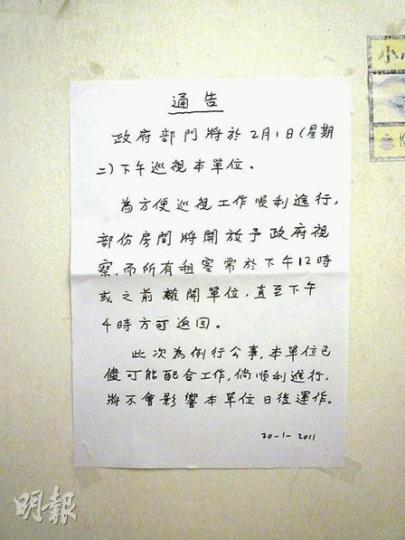 通告
政府部門將於2月1日(星期
二)下午巡視本單位。
為方便巡視工作順利進行,
部份房間將開放予政府視
察,而所有租客需於下午12時
或之前離開單位,直至下午
4時方可返回。
此次為例行公事,本單位已
儘可能配合工作,倘順利進行,
將不會影響本單位日後運作。
20-1-2011
小
明報